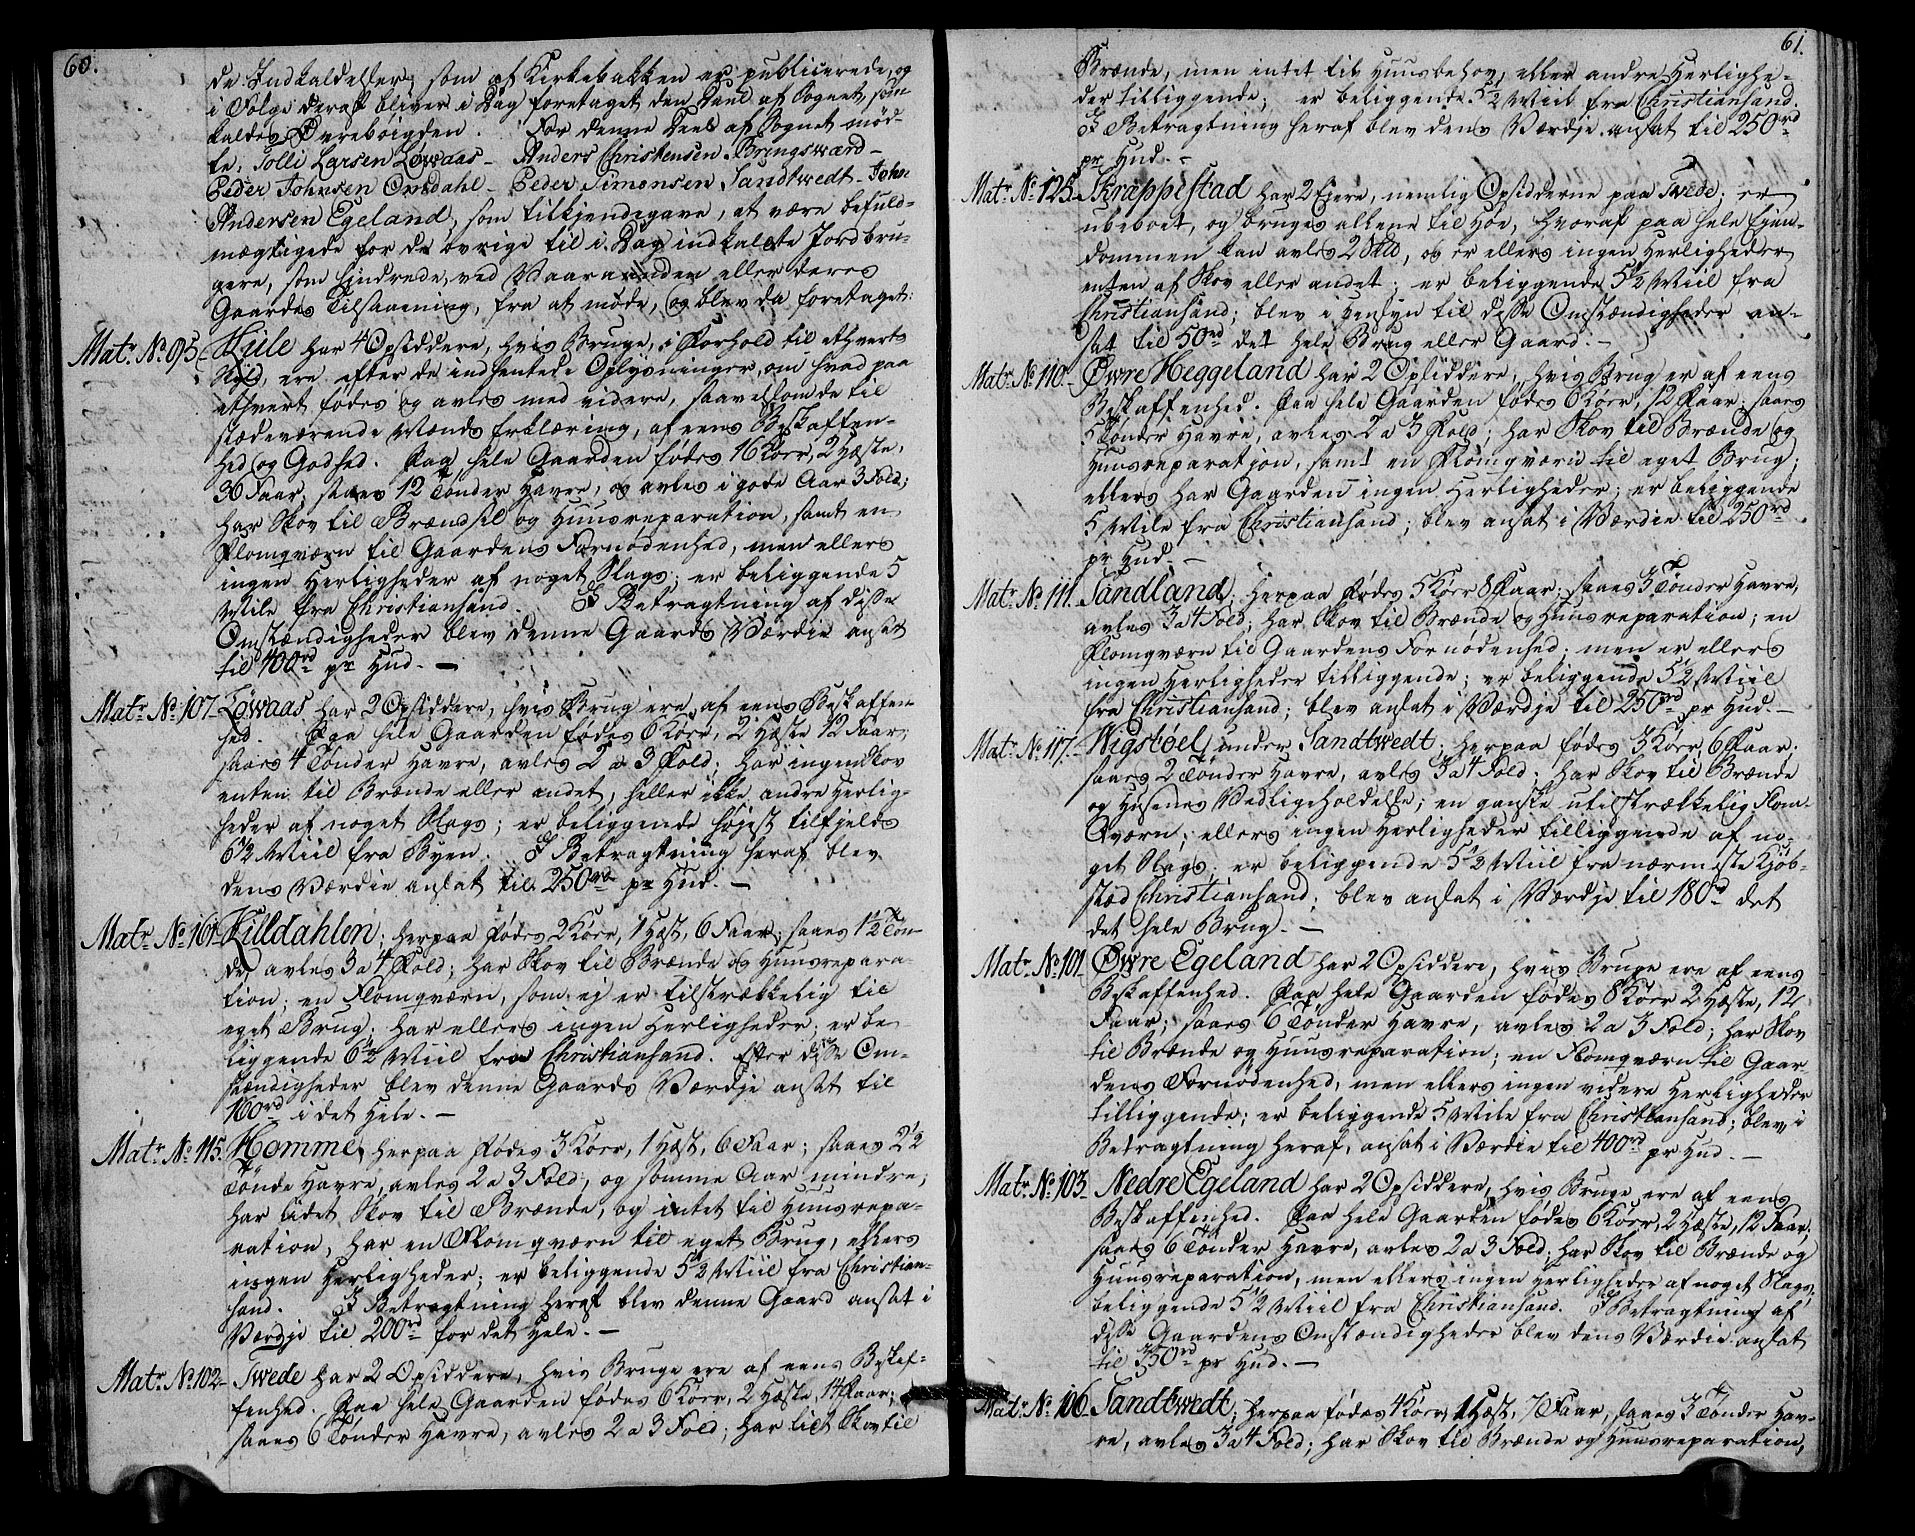 60.
de Indkaldelser, som af Kirkebakken er publicerede, og
i Følge deraf bliver i Dag foretaget den Deel af Sognet, som
kaldes Øvrebøigden. For denne Deel af Sognet mød-
te: Tolli Larsen Løwaas – Anders Christensen Bringswærd –
Peder Johnsen Omdahl – Peder Simonsen Sandtwedt – John
Andersen Egeland, som tilkjendegave, at være befuld-
mægtigede for de øvrige til i Dag indkaldte Jordbru-
gere, som hindrede, ved Vaaraanden eller deres
Gaardes Tilsaaening, fra at møde, og blev da foretaget:
Matr. No. 95. Hiile har 4 Opsiddere, hvis Bruge, i Forhold til ethverts
Skyld, ere efter de indhentede Oplysninger, om hvad paa
ethvert fødes og avles med videre, saavelsom de til
stædeværende Mænds Erklæring, af eens Beskaffen-
hed og Godhed. Paa hele Gaarden fødes 16 Køer, 2 Hæste,
30 Faar, saaes 12 Tønder Havre, og avles i gode Aar 3 Fold;
har Skov til Brændsel og Huusreparation, samt en
Flomqværn til Gaardens Fornødenhed, men ellers
ingen Herligheder af noget Slags; er beliggende 5
Mile fra Christiansand. I Betragtning af disse
Omstændigheder blev denne Gaards Værdie ansat
til 400 rd pr Hud. –
Matr. No. 107. Løwaas har 2 Opsiddere, hvis Brug ere af eens Beskaffen-
hed. Paa hele Gaarden fødes 6 Køer, 2 Hæste 12 Faar;
saaes 4 Tønder Havre, avles 2 a 3 Fold; har ingen Skov
enten til Brænde eller andet, heller ikke andre Herlig-
heder af noget Slags; er beliggende højest tilfjelds
6½ Miil fra Byen. I Betragtning heraf blev
dens Værdie ansat til 250 rd pr Hud. –
Matr. No. 161. Killdahlen; herpaa fødes 2 Køer, 1 Hæst, 6 Faar; saaes 1½ Tøn-
de, avles 3 a 4 Fold; har Skov til Brænde og Huusrepara-
tion; en Flomqværn, som ej er tilstrækkelig til
eget Brug; har ellers ingen Herligheder; er be-
liggende 6½ Miil fra Christiansand. Efter disse Om-
stændigheder blev denne Gaards Værdje ansat til
160 rd i det Hele. –
Matr. No. 115. Homme, herpaa fødes 3 Køer, 1 Hæst, 6 Faar; saaes 2½
Tønde Havre, avles 2 a 3 Fold, og somme Aar mindre;
har lidet Skov til Brænde, og intet til Huusrepa-
ration, har en Flomqværn til eget Brug, ellers
ingen Herligheder; er beliggende 5½ Miil fra Christian-
sand. I Betragtning heraf blev denne Gaard ansat i
Værdje til 200 rd for det Hele. –
Matr. No. 102. Twede har 2 Opsiddere, hvis Bruge ere af eens Beskaf-
fenhed. Paa hele Gaarden fødes 6 Køer, 2 Hæste, 14 Faar;
saaes 6 Tønder Havre, avles 2 a 3 Fold; har lidt Skov til
61.
Brænde, men intet til Huusbehov, eller andre Herlighe-
der tilliggende; er beliggende 5½ Miil fra Christiansand.
I Betragtning heraf blev dens Værdje ansat til 250 rd
pr Hud. –
Matr. No. 125. Skrappestad har 2 Eiere, nemlig Opsidderne paa Twede; er
ubeboet, og bruges allene til Høe, hvoraf paa hele Eien-
dommen kan avles 2 Læs, og er ellers ingen Herligheder
enten af Skov eller andet; er beliggende 5½ Miil fra
Christiansand; blev i Hensyn til disse Omstændigheder an-
sat til 50 rd det hele Brug eller Gaard. –
Matr. No. 110. Øwre Heggeland har 2 Opsiddere, hvis Brug er af eens
Beskaffenhed. Paa hele Gaarden fødes 6 Køer, 12 Faar; saaes
5 Tønder Havre, avles 2 a 3 Fold; har Skov til Brænde og
Huusreparation, samt en Flomqværn til eget Brug;
ellers har Gaarden ingen Herligheder; er beliggende
5 Mile fra Christiansand; blev ansat i Værdie til 250 rd
pr Hud. –
Matr. No. 111. Sandland, herpaa fødes 5 Køer 8 Faar; saaes 3 Tønder Havre,
avles 3 a 4 Fold; har Skov til Brænde og Huusreparation; en
Flomqværn til Gaardens Fornødenhed; men er ellers
ingen Herligheder tilliggende; er beliggende 5½ Miil
fra Christiansand; blev ansat i Værdje til 250 rd pr Hud. –
Matr. No. 117. Wigstøel, under Sandtwedt; herpaa fødes 3 Køer, 6 Faar;
saaes 2 Tønder Havre, avles 3 a 4 Fold; har Skov til Brænde
og Husenes Vedligeholdelse; en ganske utilstrækkelig Flom-
Qværn; ellers ingen Herligheder tilliggende af no-
get Slags; er beliggende 5½ Miil fra nærmeste Kjøb-
stæd Christiansand; blev ansat i Værdje til 180 rd det
det hele Brug. –
Matr. No. 101. Øwre Egeland har 2 Opsiddere, hvis Bruge ere af eens
Beskaffenhed. Paa hele Gaarden fødes 8 Køer 2 Hæste, 12
Faar; saaes 6 Tønder Havre, avles 2 a 3 Fold; har Skov
til Brænde og Huusreparation; en Flomqværn til Gaar-
dens Fornødenhed, men ellers ingen videre Herligheder
tilliggende; er beliggende 5 Mile fra Christiansand; blev, i
Betragtning heraf, ansat i Værdie til 400 rd pr Hud. –
Matr. No. 103. Nedre Egeland har 2 Opsiddere, hvis Bruge ere af eens
Beskaffenhed. Paa hele Gaarden fødes 6 Køer, 2 Hæste, 12 Faar,
saaes 6 Tønder Havre, avles 2 a 3 Fold; har Skov til Brænde og
Huusreparation, men ellers ingen Herligheder af noget Slags,
beliggende 5½ Miil fra Christiansand. I Betragtning af
disse Gaardens Omstændigheder blev dens Værdie ansat
til 350 rd pr Hud. –
Matr. No. 106. Sandtwedt; herpaa fødes 4 Køer, 1 Hæst, 7 Faar, saaes 3 Tønder Hav-
re, avles 3 a 4 Fold; har Skov til Brænde og Huusreparation,